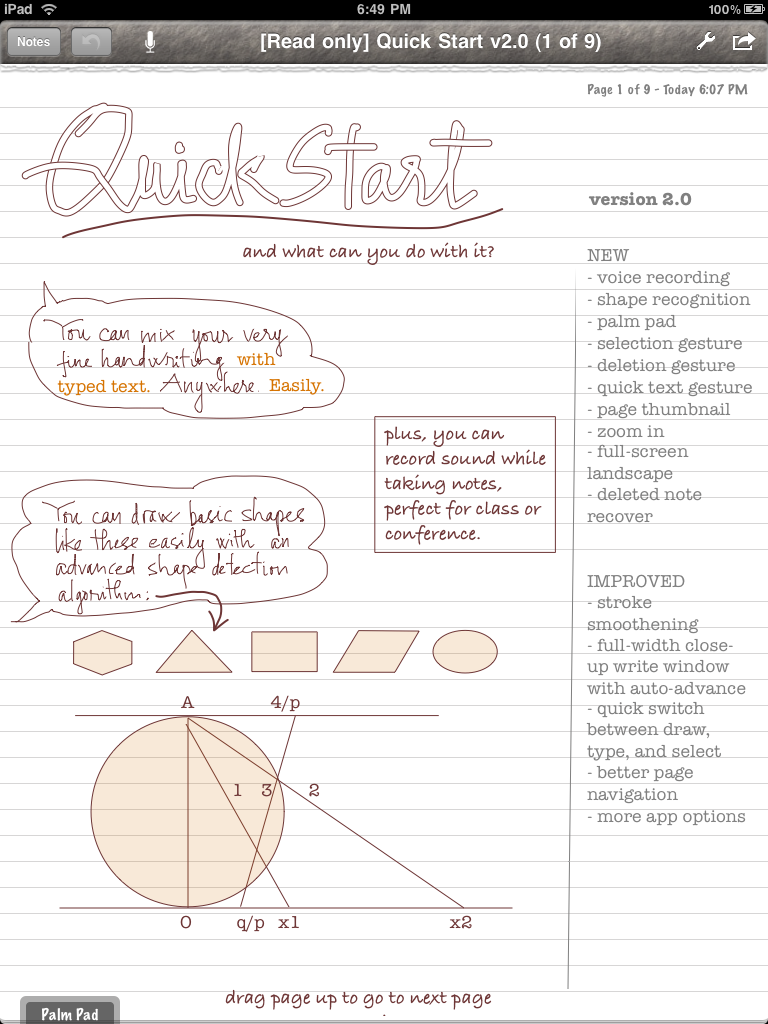 iPad
6:49 PM
100%
Notes
[Read only] Quick Start v2.0 (1 of 9)
Page 1 of 9 - Today 6:07 PM
Quick Start
version 2.0
and what can you do with it?
You can mix your very
fine handwriting with
typed text. Anywhere. Easily.
plus, you can
record sound while
taking notes,
perfect for class or
conference.
You can draw basic shapes
like these easily with an
advanced shape detection
algorithm:
A
4/p
1
3
2
0
q/p
x1
x2
NEW
- voice recording
- shape recognition
- palm pad
- selection gesture
- deletion gesture
- quick text gesture
- page thumbnail
- zoom in
- full-screen
landscape
- deleted note
recover
IMPROVED
- stroke
smoothening
- full-width close-
up write window
with auto-advance
- quick switch
between draw,
type, and select
- better page
navigation
- more app options
drag page up to go to next page
Palm Pad